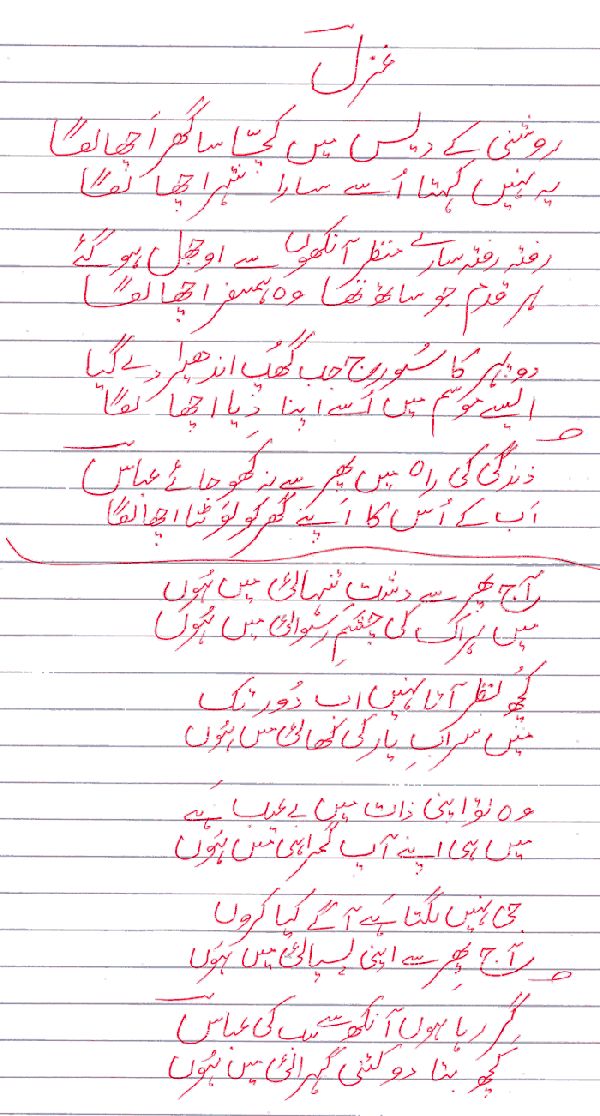 غزل
روشنی کے دیس میں کچّا سا گھر اَچھا لگا
یہ نہیں کہتا اُسے سارا شہر اچھا لگا
رفتہ رفتہ سارے منظر آنکھوں سے اوجھل ہو گئے
ہر قدم جو ساتھ تھا وہ ہمسفر اچھا لگا
دوپہر کا سُورج جب گھُپ اندھیرا دے گیا
ایسے موسم میں اُسے اپنا دِیا اچھا لگا
زندگی کی راہ میں پھر سے نہ کھو جائے عباس
اَب کے اُس کا اَپنے گھر کو لَوٹنا اچھا لگا
آج پھر سے دشتِ تنہائی میں ہُوں
میں ہر اک کی چشمِ رسوائی میں ہُوں
کُچھ نظر آتا نہیں اب دُور تک
میں سرابِ یار کی کھائی میں ہُوں
وہ تو اپنی ذات میں بے عیب ہَے
میں ہی اپنے آپ گمراہی میں ہُوں
جی نہیں لگتا ہَے آگے کیا کروں
آج پھِر سے اپنی پسپائی میں ہُوں
گِر رہا ہوں آنکھ سے کب کی عباس
کچھ بتا دو کتنی گہرائی میں ہُوں